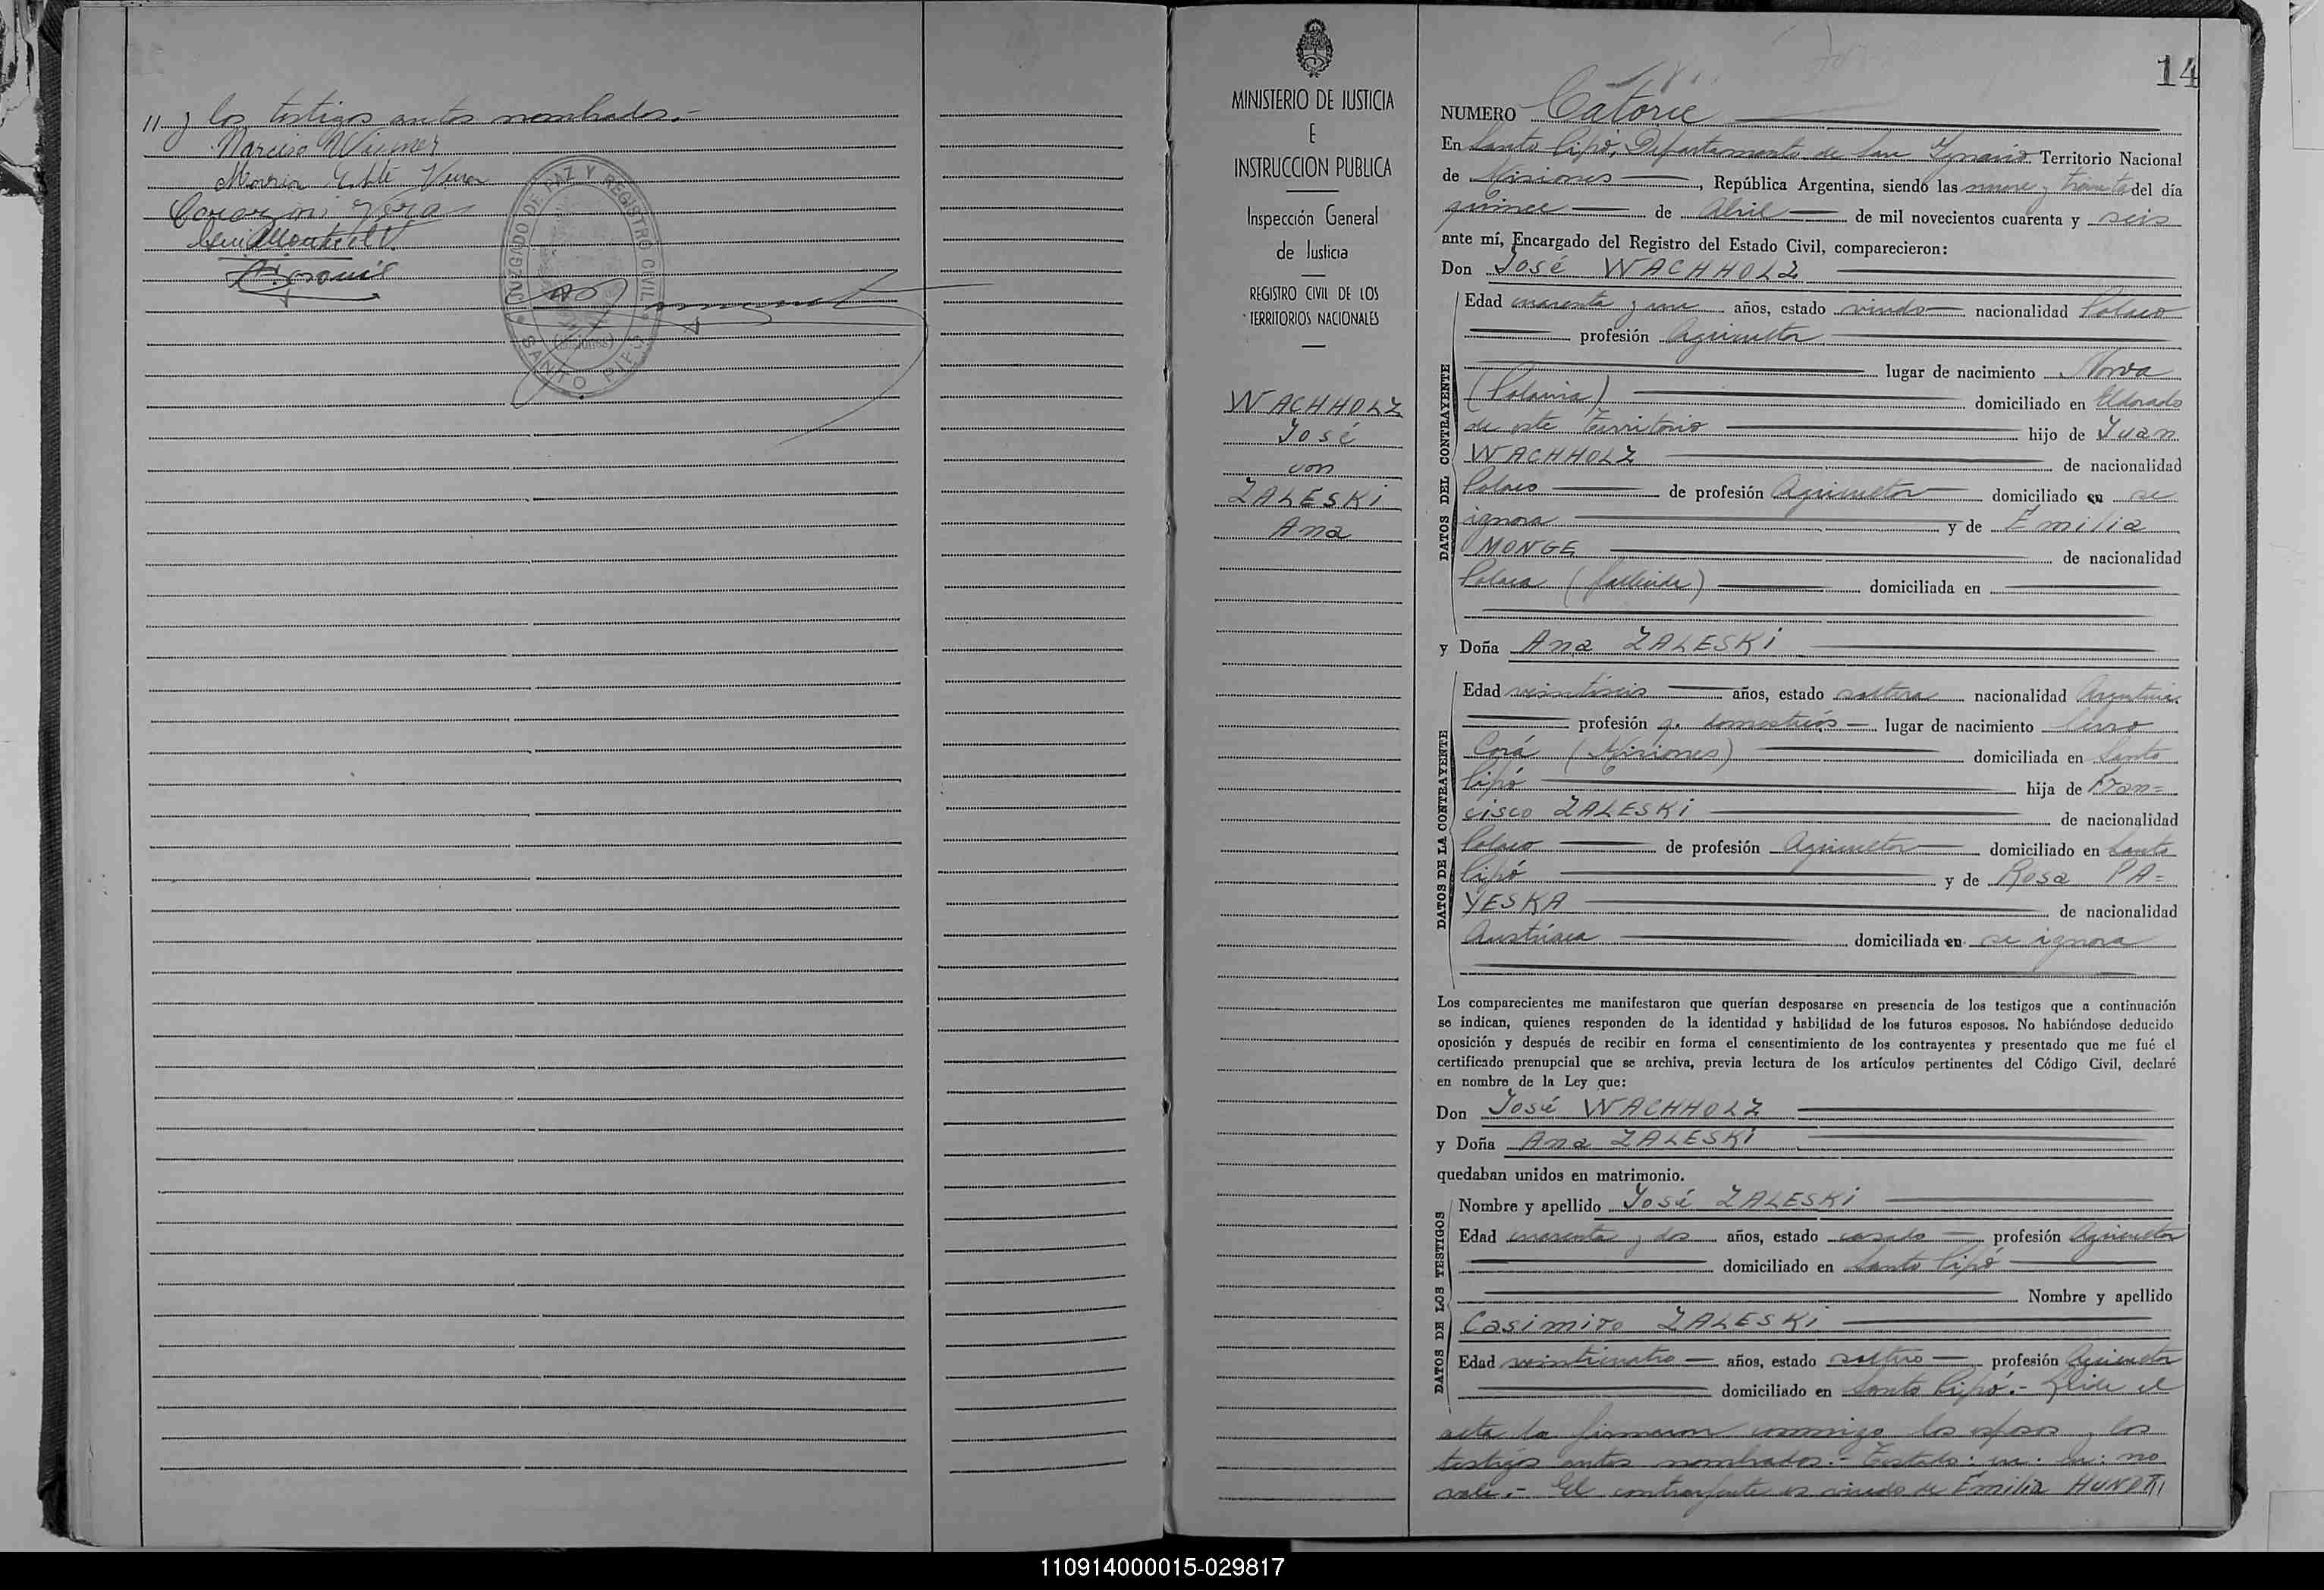 11 y los testigos antes nombrados.-
JUZGADO DE PAZ Y REGISTRO CIVIL
(Misiones)
SANTO PIPÓ
MINISTERIO DE JUSTICIA
E
INSTRUCCION PUBLICA
Inspección General
de Justicia
REGISTRO CIVIL DE LOS
TERRITORIOS NACIONALES
WACHHOLZ
José
con
ZALESKI
Ana
14
NUMERO Catorce
En Santo Pipó, Departamento de San Ygnacio Territorio Nacional
de Misiones, República Argentina, siendo las nueve y treinta del día
quince de Abril de mil novecientos cuarenta y seis
ante mí, Encargado del Registro del Estado Civil, comparecieron:
Don José WACHHOLZ
DATOS DEL CONTRAYENTE
Edad cuarenta y un años, estado viudo nacionalidad Polaco
profesión Agricultor
lugar de nacimiento
(Polonia) domiciliado en Eldorado
de este Territorio hijo de Juan
WACHHOLZ de nacionalidad
Polaco de profesión Agricultor domiciliado en se
ignora y de Emilia
MONGE de nacionalidad
Polaca (fallecida) domiciliada en
y Doña Ana ZALESKI
DATOS DE LA CONTRAYENTE
Edad veintiseis años, estado soltera nacionalidad Argentina
profesión q. domesticos lugar de nacimiento Cerro
Corá (Misiones) domiciliada en Santo
Pipó hija de Fran=
cisco ZALESKI de nacionalidad
Polaco de profesión Agricultor domiciliado en Santo
Pipó y de Rosa PA=
YESKA de nacionalidad
Austríaca domiciliada en se ignora
Los comparecientes me manifestaron que querían desposarse en presencia de los testigos que a continuación
se indican, quienes responden de la identidad y habilidad de los futuros esposos. No habiéndose deducido
oposición y después de recibir en forma el consentimiento de los contrayentes y presentado que me fué el
certificado prenupcial que se archiva, previa lectura de los artículos pertinentes del Código Civil, declaré
en nombre de la Ley que:
Don José WACHHOLZ
y Doña Ana ZALESKI
quedaban unidos en matrimonio.
DATOS DE LOS TESTIGOS
Nombre y apellido José ZALESKI
Edad cuarenta y dos años, estado casado profesión Agricultor
domiciliado en Santo Pipó
Nombre y apellido
Casimiro ZALESKI
Edad veinticuatro años, estado soltero profesión Agricultor
domiciliado en Santo Pipó.- Leída el
acta la firmaron conmigo los esposos y los
testigos antes nombrados.- Testado: un: no
vale.- El contrayente es viudo de Emilia
110914000015-029817